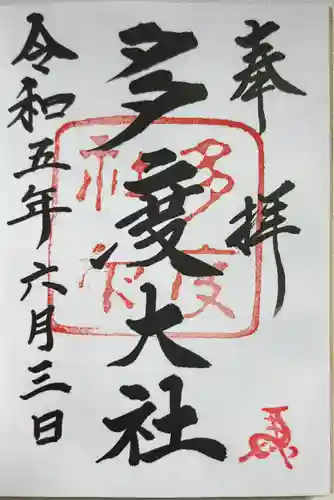 奉拝
多度大社
令和五年六月三日
多度